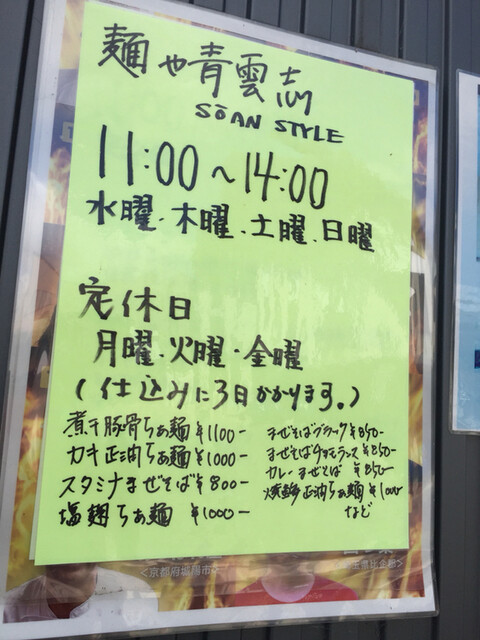 麺や青雲志
SŌAN STYLE
11:00～14:00
水曜、木曜、土曜、日曜
定休日
月曜、火曜・金曜
(仕込みに3日かかります。)
煮干豚骨らぁ麺 ¥1100-
カキ正油らぁ麺 ¥1000-
スタミナまぜそば ¥800-
塩麹らぁ麺 ¥1000-
まぜそばブラック ¥850-
まぜそば ¥850-
カレーまぜそば ¥850-
正油らぁ麺 ¥1000
など
<京都府城陽市>
玉県比企郡>